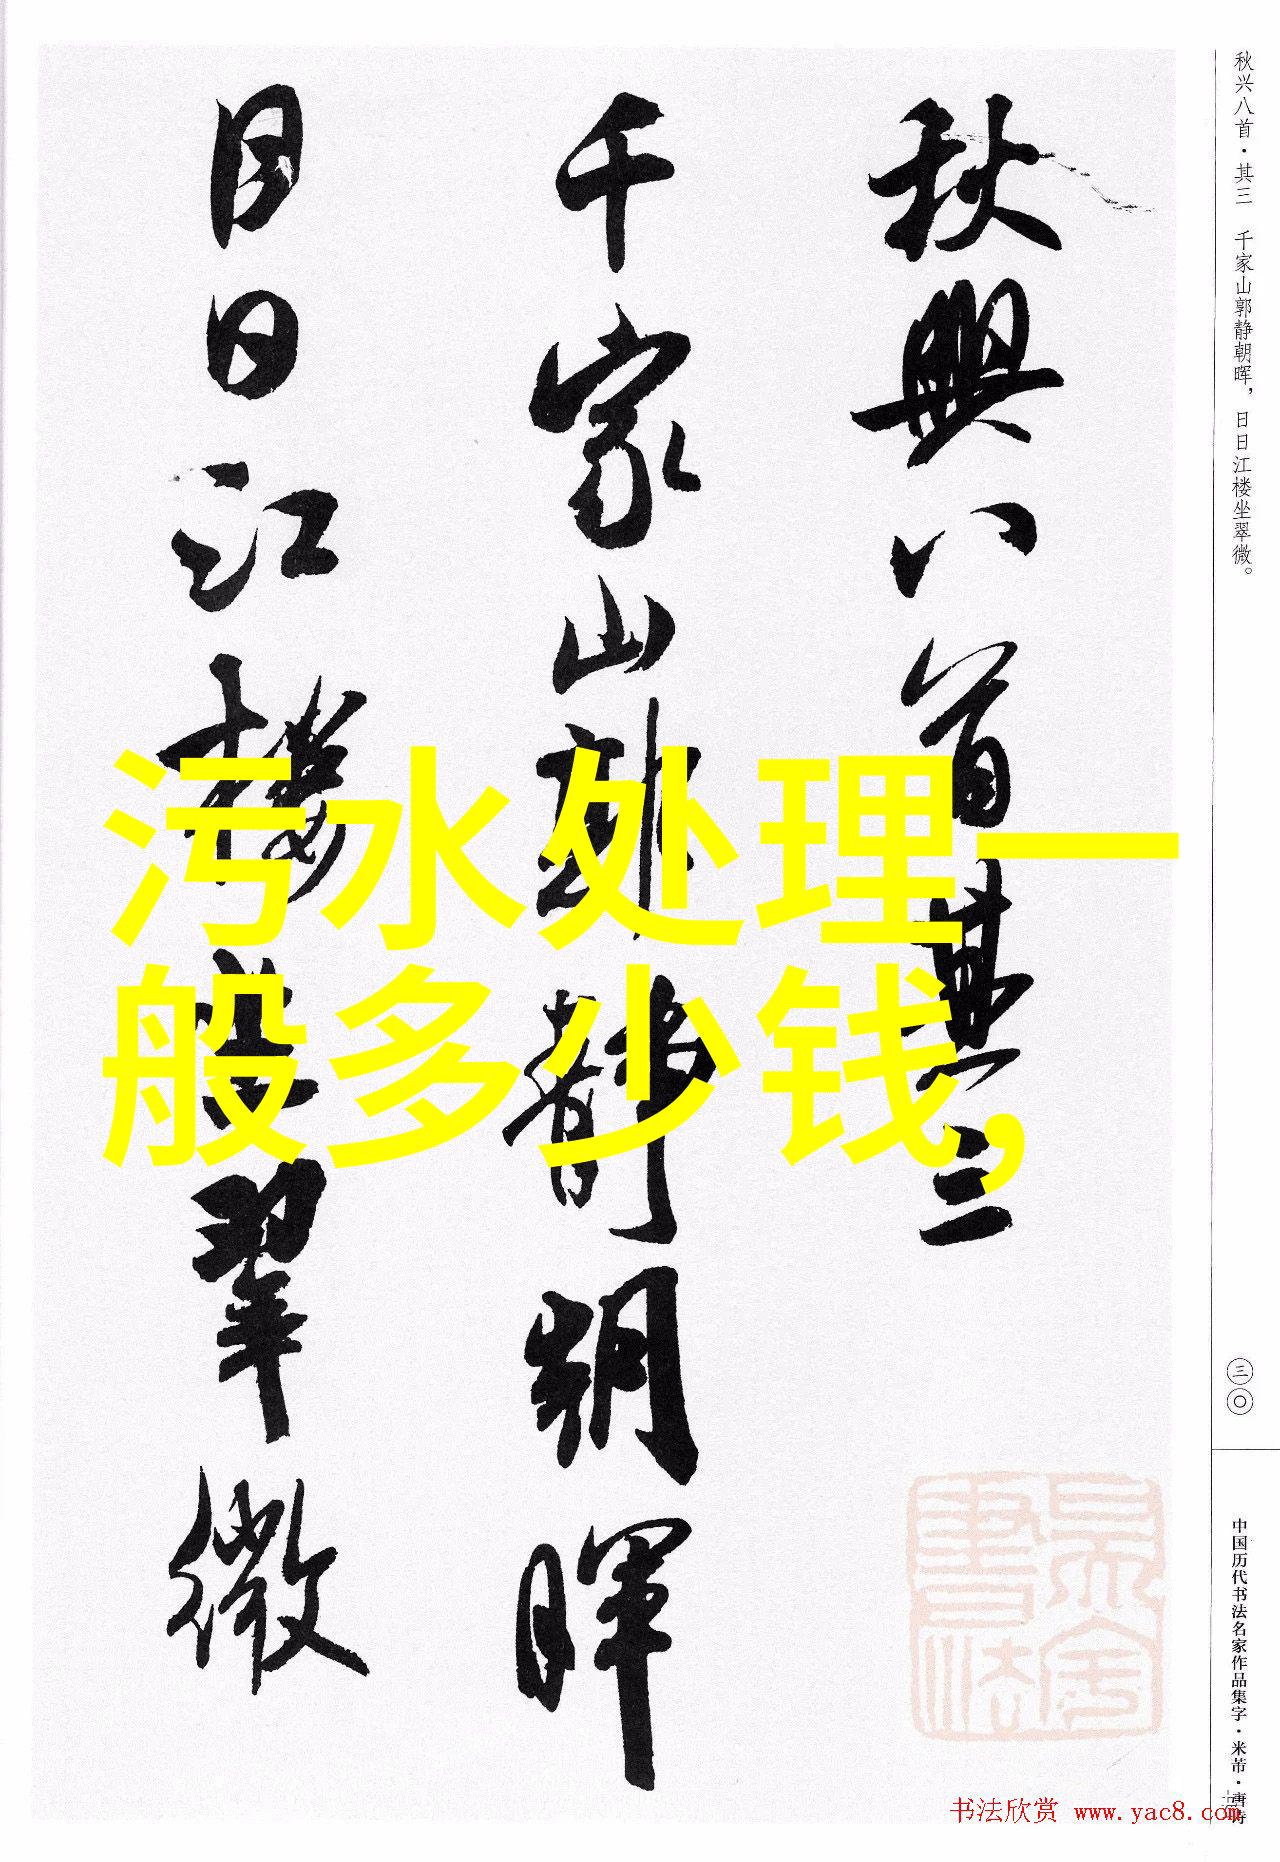 秋兴八首·其三 千家山郭静朝晖，日日江楼坐翠微。
秋興八首其三
千家山郭静朝暉
日日江樓坐翠微
污水处理一
般多少钱,
三〇
中国历代书法名家作品集字·米芾·唐诗
书法欣赏 www.yac8.com